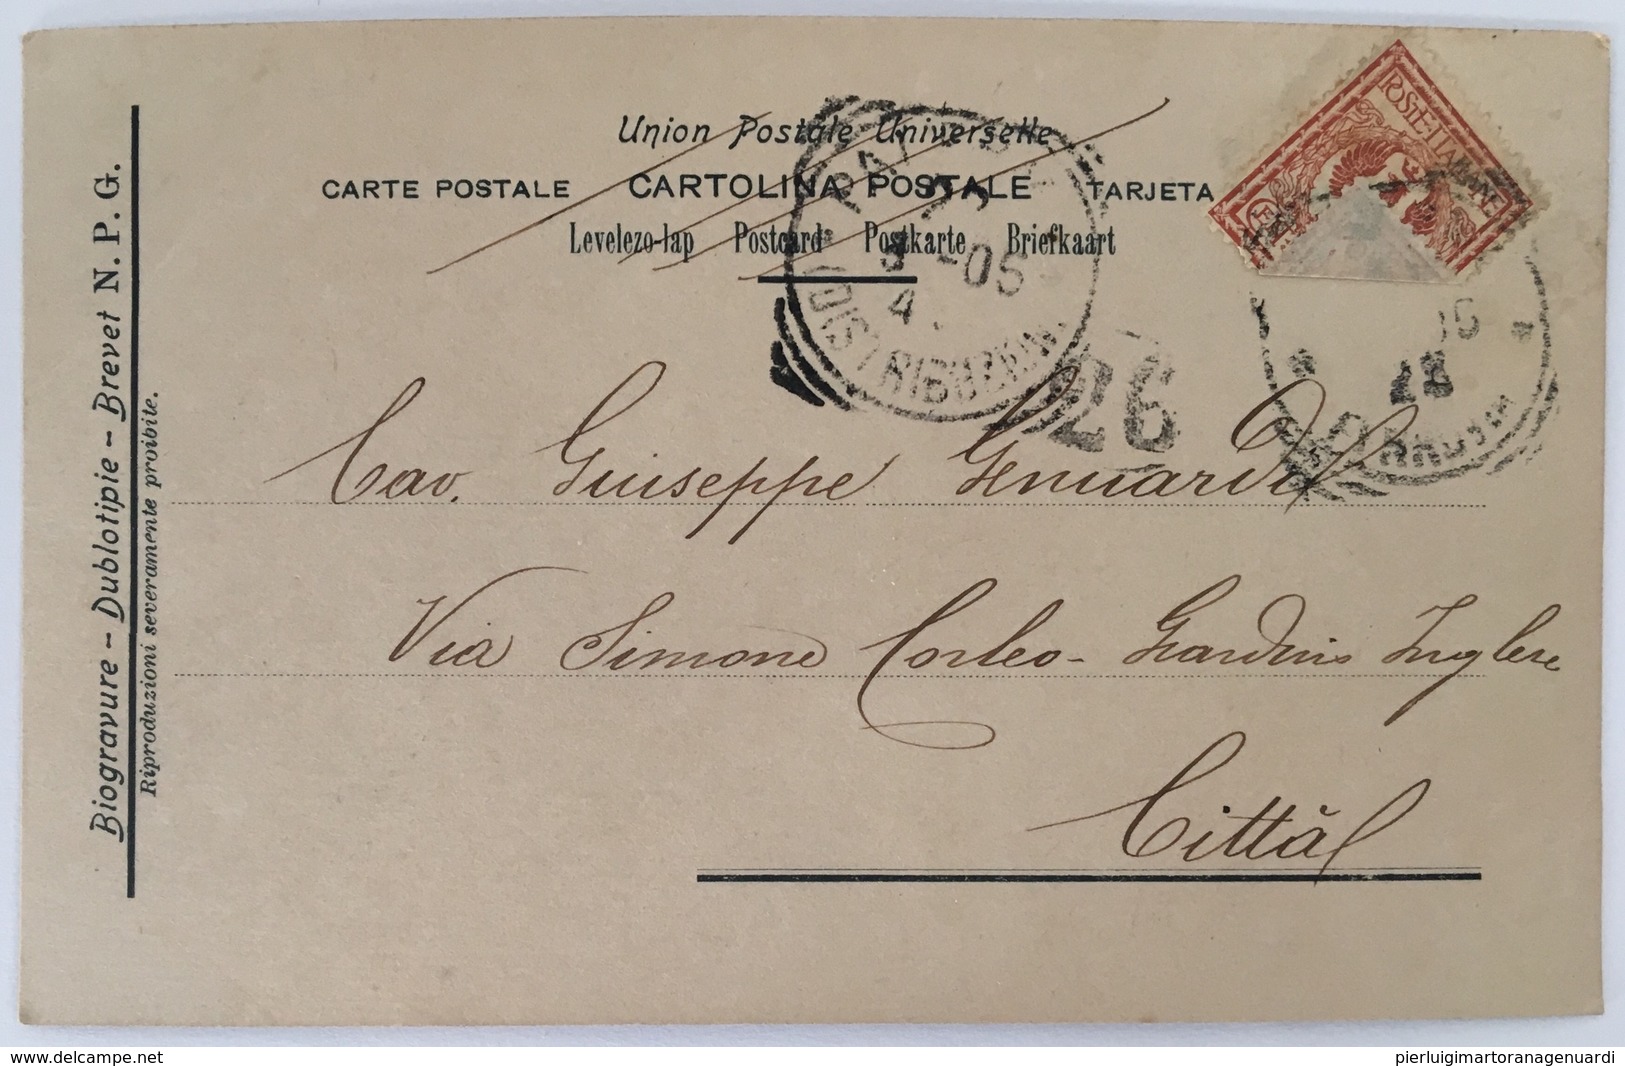 Union Postale Universelle
CARTE POSTALE CARTOLINA POSTALE TARJETA
Levelezo-lap Postcard Postkarte Briefkaart
POSTE ITALIANE
DISTRIBUZION
-05
26
FERROVIA
Cav. Giuseppe Genuardi
Via Simone Corleo - Giardino Inglese
Città
Biogravure - Dublotipie - Brevet N. P. G.
Riproduzioni severamente proibite.
www.delcampe.net
pierluigimartoranagenuardi